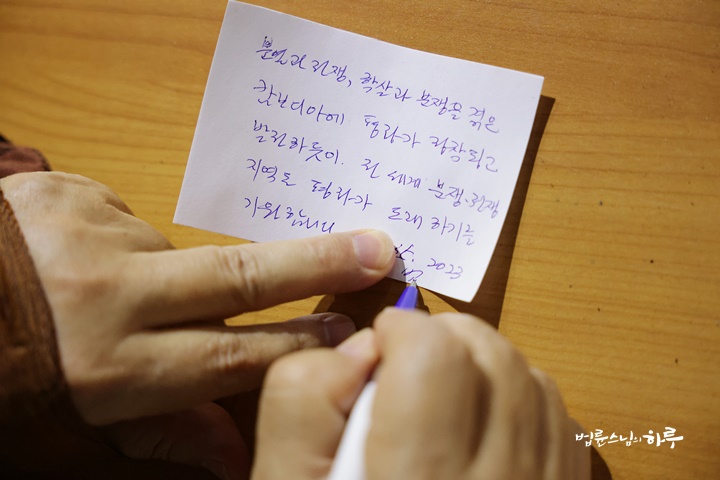 분열과 전쟁, 학살과 분쟁을 겪은
캄보디아에 평화가 정착되고
발전하듯이. 전 세계 분쟁·전쟁
지역도 평화가 도래하기를
기원합니다
2023
법륜스님의 하루